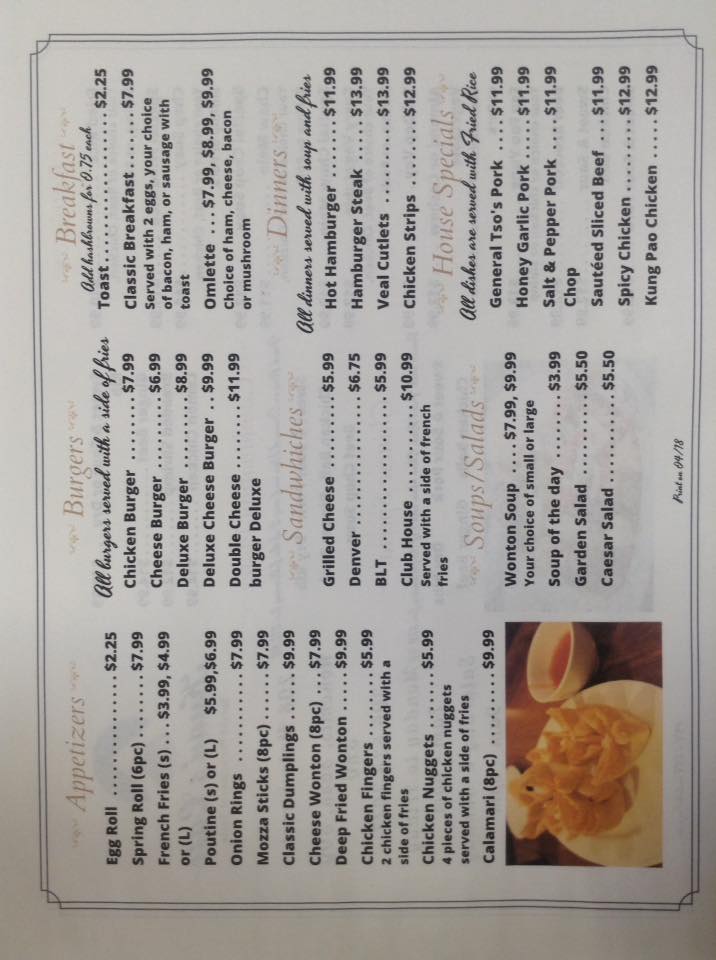 Appetizers
Egg Roll ................ $2.25
Spring Roll (6pc) ........ $7.99
French Fries (s) ... $3.99, $4.99
or (L)
Poutine (s) or (L) $5.99,$6.99
Onion Rings ............ $7.99
Mozza Sticks (8pc) ...... $7.99
Classic Dumplings ....... $9.99
Cheese Wonton (8pc) ... $7.99
Deep Fried Wonton ..... $9.99
Chicken Fingers ........ $5.99
2 chicken fingers served with a
side of fries
Chicken Nuggets ....... $5.99
4 pieces of chicken nuggets
served with a side of fries
Calamari (8pc) .......... $9.99
Burgers
All burgers served with a side of fries
Chicken Burger ........ $7.99
Cheese Burger ......... $6.99
Deluxe Burger ......... $8.99
Deluxe Cheese Burger .. $9.99
Double Cheese ........ $11.99
burger Deluxe
Sandwhiches
Grilled Cheese ......... $5.99
Denver ................ $6.75
BLT .................. $5.99
Club House .......... $10.99
Served with a side of french
fries
Soups/Salads
Wonton Soup .... $7.99, $9.99
Your choice of small or large
Soup of the day ........ $3.99
Garden Salad .......... $5.50
Caesar Salad .......... $5.50
Breakfast
Add hashbrowns for 0.75 each
Toast.................. $2.25
Classic Breakfast....... $7.99
Served with 2 eggs, your choice
of bacon, ham, or sausage with
toast
Omlette ... $7.99, $8.99, $9.99
Choice of ham, cheese, bacon
or mushroom
Dinners
All dinners served with soup and fries
Hot Hamburger ....... $11.99
Hamburger Steak ..... $13.99
Veal Cutlets .......... $13.99
Chicken Strips ........ $12.99
House Specials
All dishes are served with Fried Rice
General Tso's Pork ... $11.99
Honey Garlic Pork .... $11.99
Salt & Pepper Pork ... $11.99
Chop
Sautéed Sliced Beef ... $11.99
Spicy Chicken ........ $12.99
Kung Pao Chicken ..... $12.99
Print on 04/18